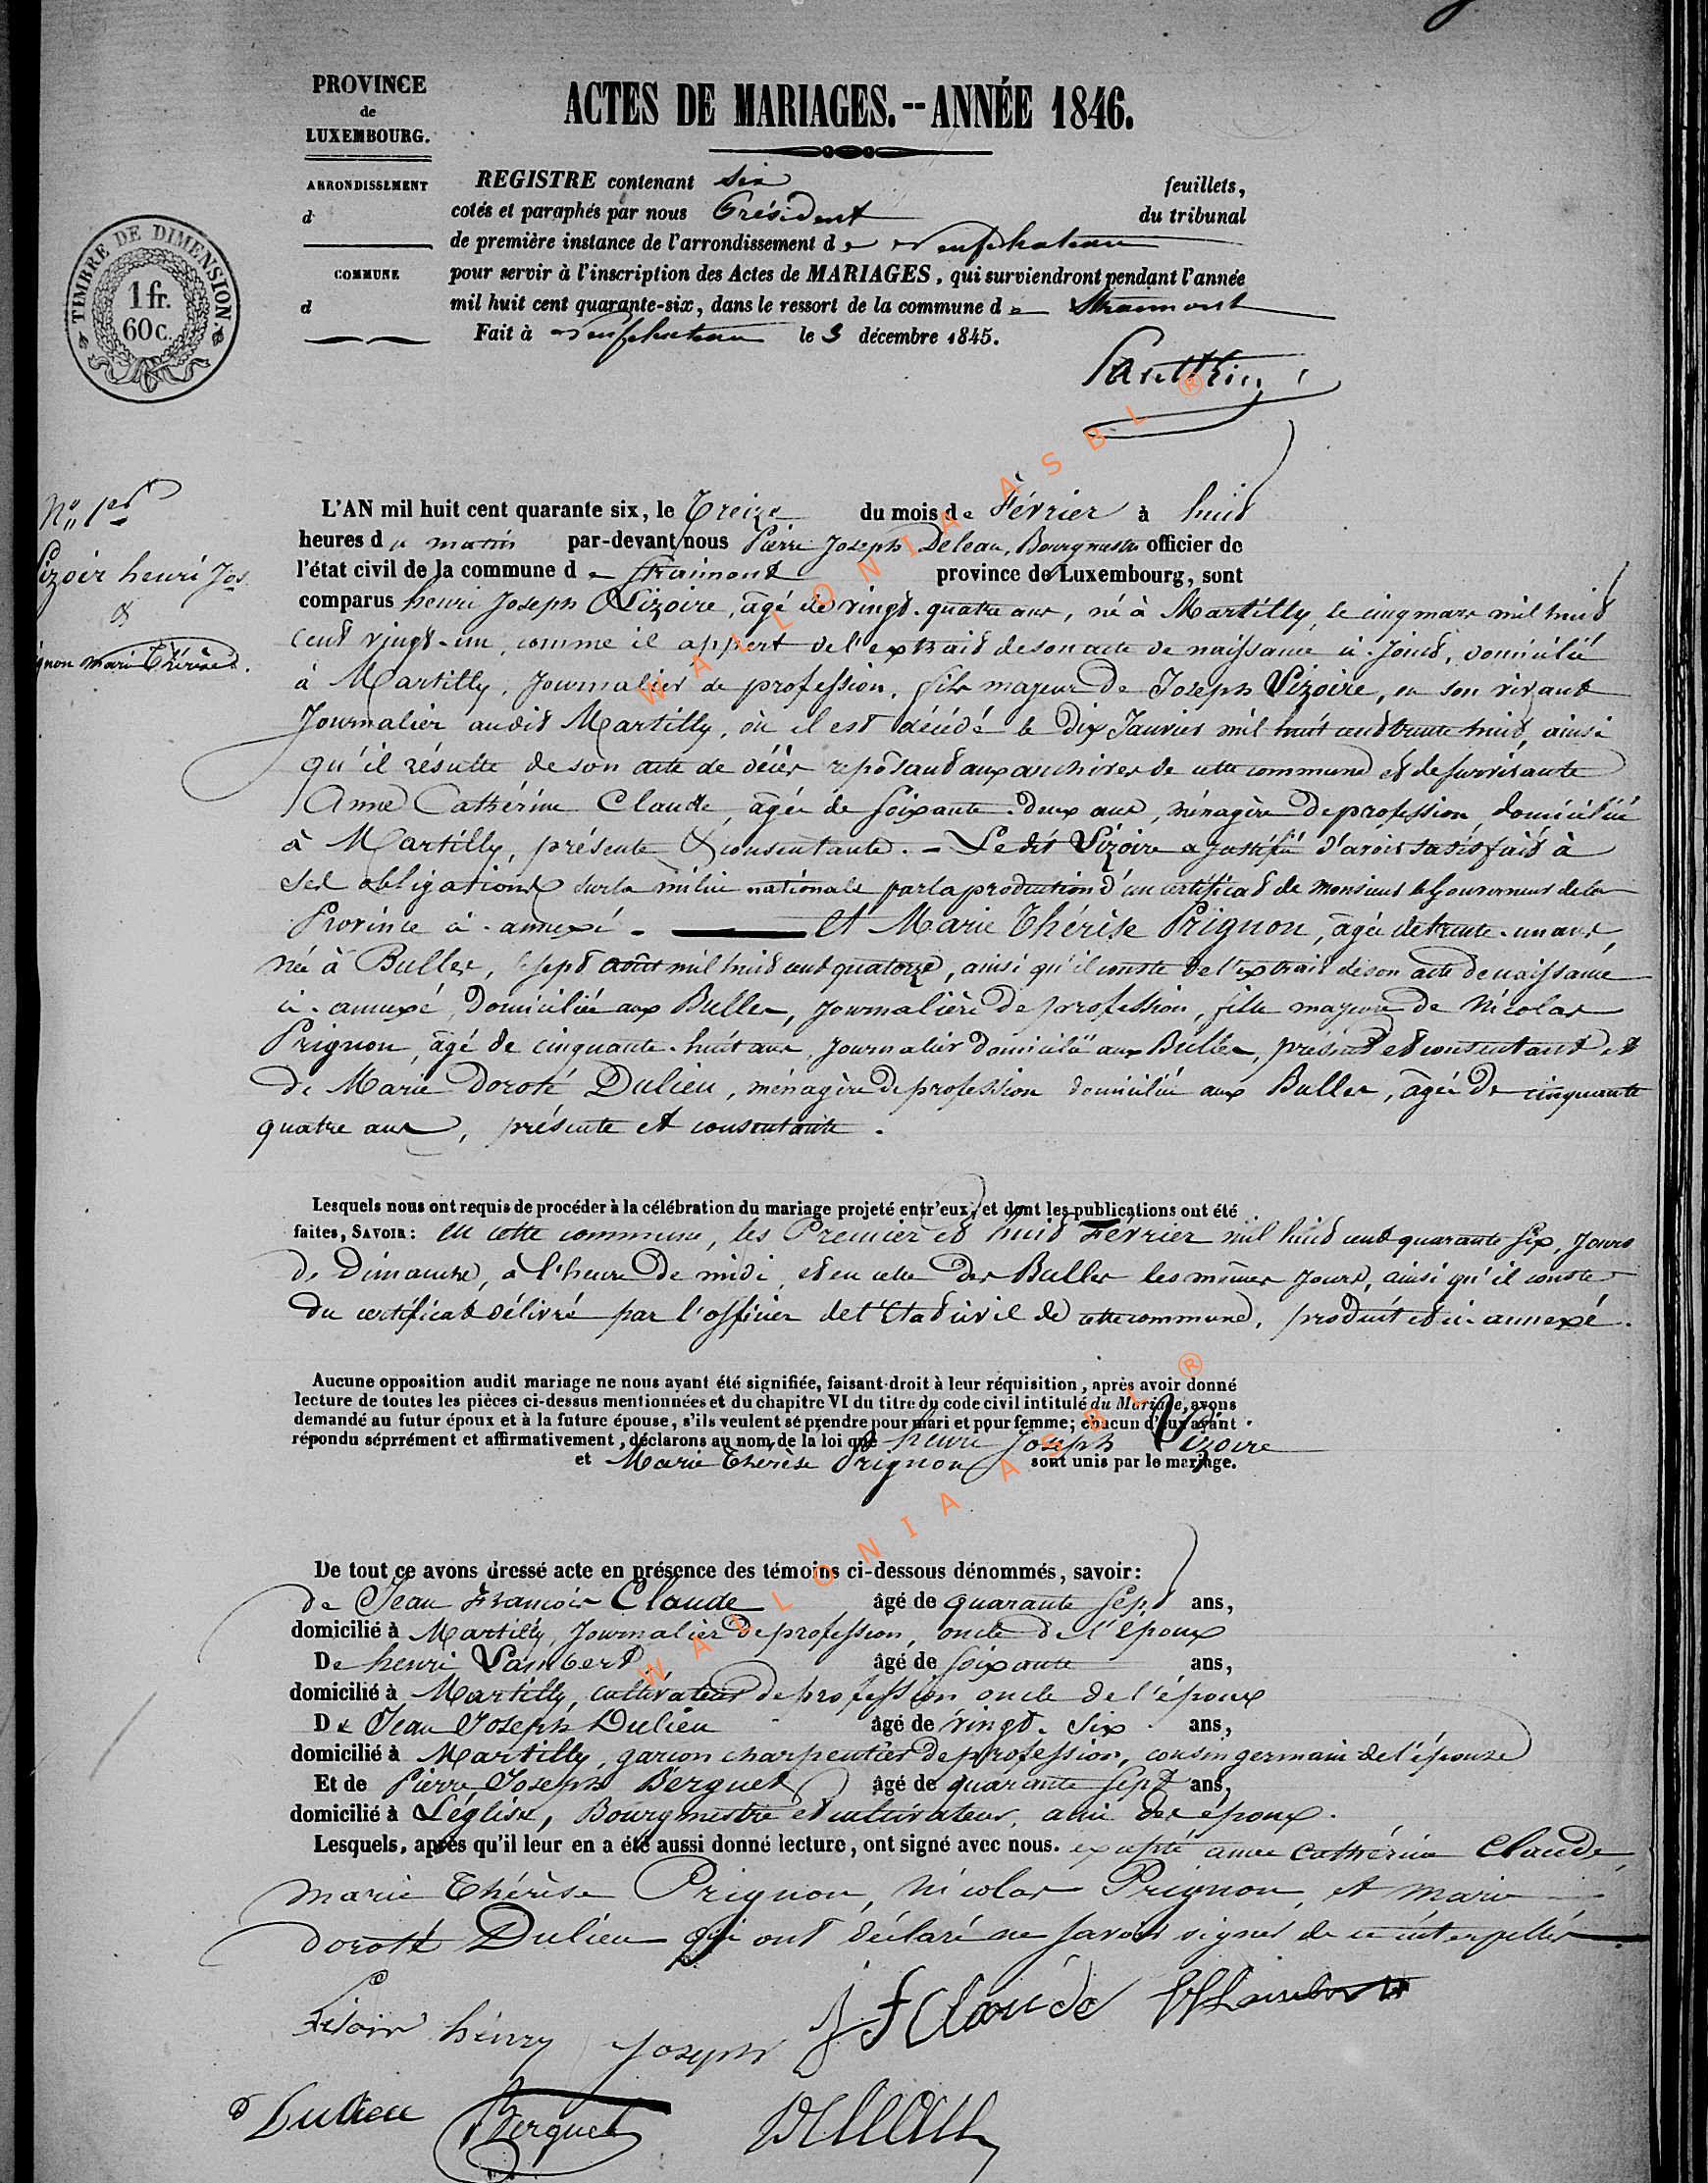 PROVINCE
de
LUXEMBOURG.
ACTES DE MARIAGES.--ANNÉE 1846.
ARRONDISSEMENT
d
COMMUNE
d
TIMBRE DE DIMENSION
1 fr.
60 c.
REGISTRE contenant six feuillets,
cotés et paraphés par nous Président du tribunal
de première instance de l'arrondissement de Neufchateau
pour servir à l'inscription des Actes de MARIAGES, qui surviendront pendant l'année
mil huit cent quarante-six, dans le ressort de la commune de Straimont
Fait à Neufchateau le 3 décembre 1845.
N° 1er
Lizoir henri Jos.
&
ignon marie Thérèse.
L'AN mil huit cent quarante six, le Treize du mois de Février à huit
heures du matin par-devant nous Pierre Joseph Deleau, Bourgmestre officier de
l'état civil de la commune de Straimont province de Luxembourg, sont
comparus henri Joseph Lizoire, âgé de vingt-quatre ans, né à Martilly, le cinq mars mil huit
cent vingt-un, comme il appert de l'extrait de son acte de naissance ci-joint, domicilié
à Martilly, Journalier de profession, fils majeur de Joseph Lizoire, en son vivant
Journalier audit Martilly, où il est décédé le Dix Janvier mil huit cent trente huit, ainsi
qu'il résulte de son acte de décès reposant aux archives de cette commune et de survivante
Anne Cathérine Claude, âgée de soixante-deux ans, ménagère de profession, domiciliée
à Martilly, présente & consentante. - Le dit Lizoire a justifié d'avoir satisfait à
ses obligations sur la milice nationale par la production d'un certificat de monsieur le Gouverneur de la
Province ci-annexé. - et Marie Thérèse Prignon, âgée de trente-un ans,
née à Bulles, le sept août mil huit cent quatorze, ainsi qu'il conste de l'extrait de son acte de naissance
ci-annexé, Domiciliée aux Bulles, journalière de profession, fille majeure de Nicolas
Prignon, âgé de cinquante-huit ans, journalier domicilié aux Bulles, présent et consentant et
de Marie Doroté Dulieu, ménagère de profession domiciliée aux Bulles, âgée de cinquante
quatre ans, présente et consentante.
Lesquels nous ont requis de procéder à la célébration du mariage projeté entr'eux, et dont les publications ont été
faites, SAVOIR: en cette commune, les Premier et huit Février mil huit cent quarante six, jours
de Dimanche, à l'heure de midi, et en celle des Bulles les mêmes jours, ainsi qu'il conste
du certificat délivré par l'officier de l'Etat civil de cette commune, produit et ci-annexé.
Aucune opposition audit mariage ne nous ayant été signifiée, faisant-droit à leur réquisition, après avoir donné
lecture de toutes les pièces ci-dessus mentionnées et du chapitre VI du titre du code civil intitulé du Mariage, avons
demandé au futur époux et à la future épouse, s'ils veulent se prendre pour mari et pour femme; chacun d'eux ayant
répondu séprrément et affirmativement, déclarons au nom de la loi que henri Joseph Lizoire
et Marie Thérèse Prignon sont unis par le mariage.
De tout ce avons dressé acte en présence des témoins ci-dessous dénommés, savoir:
de Jean François Claude âgé de quarante sept ans,
domicilié à Martilly, Journalier de profession, oncle de l'époux
De henri Lambert âgé de soixante ans,
domicilié à Martilly, cultivateur de profession oncle de l'époux
De Jean Joseph Dulieu âgé de vingt-six ans,
domicilié à Martilly, garcon charpentier de profession, cousin germain de l'épouse
Et de Pierre Joseph Berguet âgé de quarante sept ans,
domicilié à Léglise, Bourgmestre et cultivateur, ami des époux.
Lesquels, après qu'il leur en a été aussi donné lecture, ont signé avec nous. excepté anne cathérine Claude,
marie Thérèse Prignon, Nicolas Prignon, et marie
doroté Dulieu qui ont déclaré ne savoir signer de ce interpellés
Lisoir henry Joseph J f Claude H Lambert
Dulieu Berguet Deleau
WALLONIA ASBL ®
WALLONIA ASBL ®